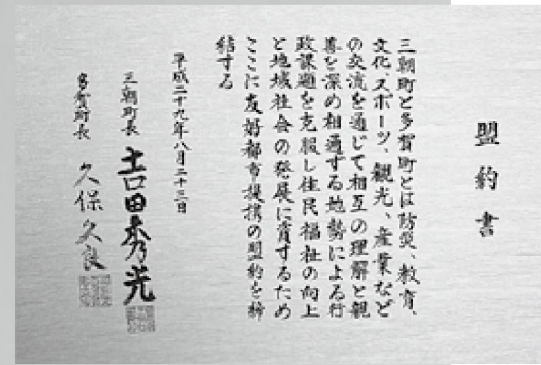 盟約書
三朝町と多賀町とは防災、教育、
文化、スポーツ、観光、産業など
の交流を通じて相互の理解と親
善を深め相通ずる地勢による行
政課題を克服し住民福祉の向上
と地域社会の発展に資するため
ここに友好都市提携の盟約を締
結する
平成二十九年八月二十三日
三朝町長 吉田秀光
多賀町長 久保久良